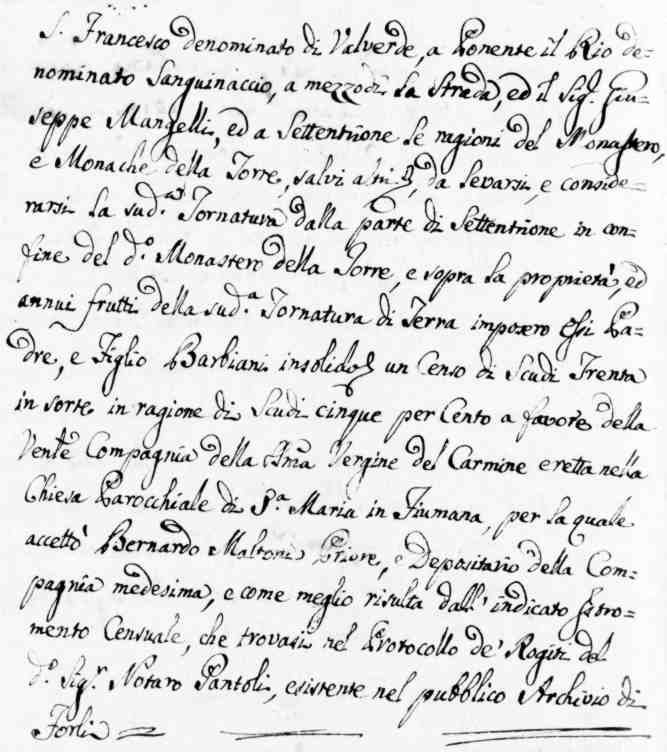 S. Francesco denominato di Valverde, a Ponente il Rio de=
nominato Sanguinaccio, a mezzodì la Strada, ed il Sig. Giu=
seppe Mangelli, ed a Settentrione le ragioni del Monastero,
e Monache della Torre, salvi altri, da levarsi, e conside=
rarsi la sud.a Tornatura dalla parte di Settentrione in con=
fine del d.o Monastero della Torre, e sopra la proprietà, ed
annui frutti della sud.a Tornatura di Terra imposero essi Pa=
dre, e Figlio Barbiani insolid un Censo di Scudi Trenta
in sorte in ragione di Scudi cinque per Cento a favore della
Vente Compagnia della Sma Vergine del Carmine eretta nella
Chiesa Parocchiale di S.a Maria in Fiumana, per la quale
accettò Bernardo Maltoni Priore, e Depositario della Com=
pagnia medesima, e come meglio risulta dall' indicato Istro=
mento Censuale, che trovasi nel Protocollo de' Rogiti del
d.o Sig.r Notaro Pantoli, esistente nel pubblico Archivio di
Forlì